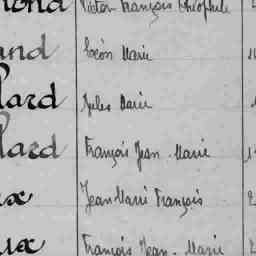 Victor François Théophile
and Léon Marie
lard Jules Marie
lard François Jean-Marie
ux Jean Marie François
ux François Jean-Marie